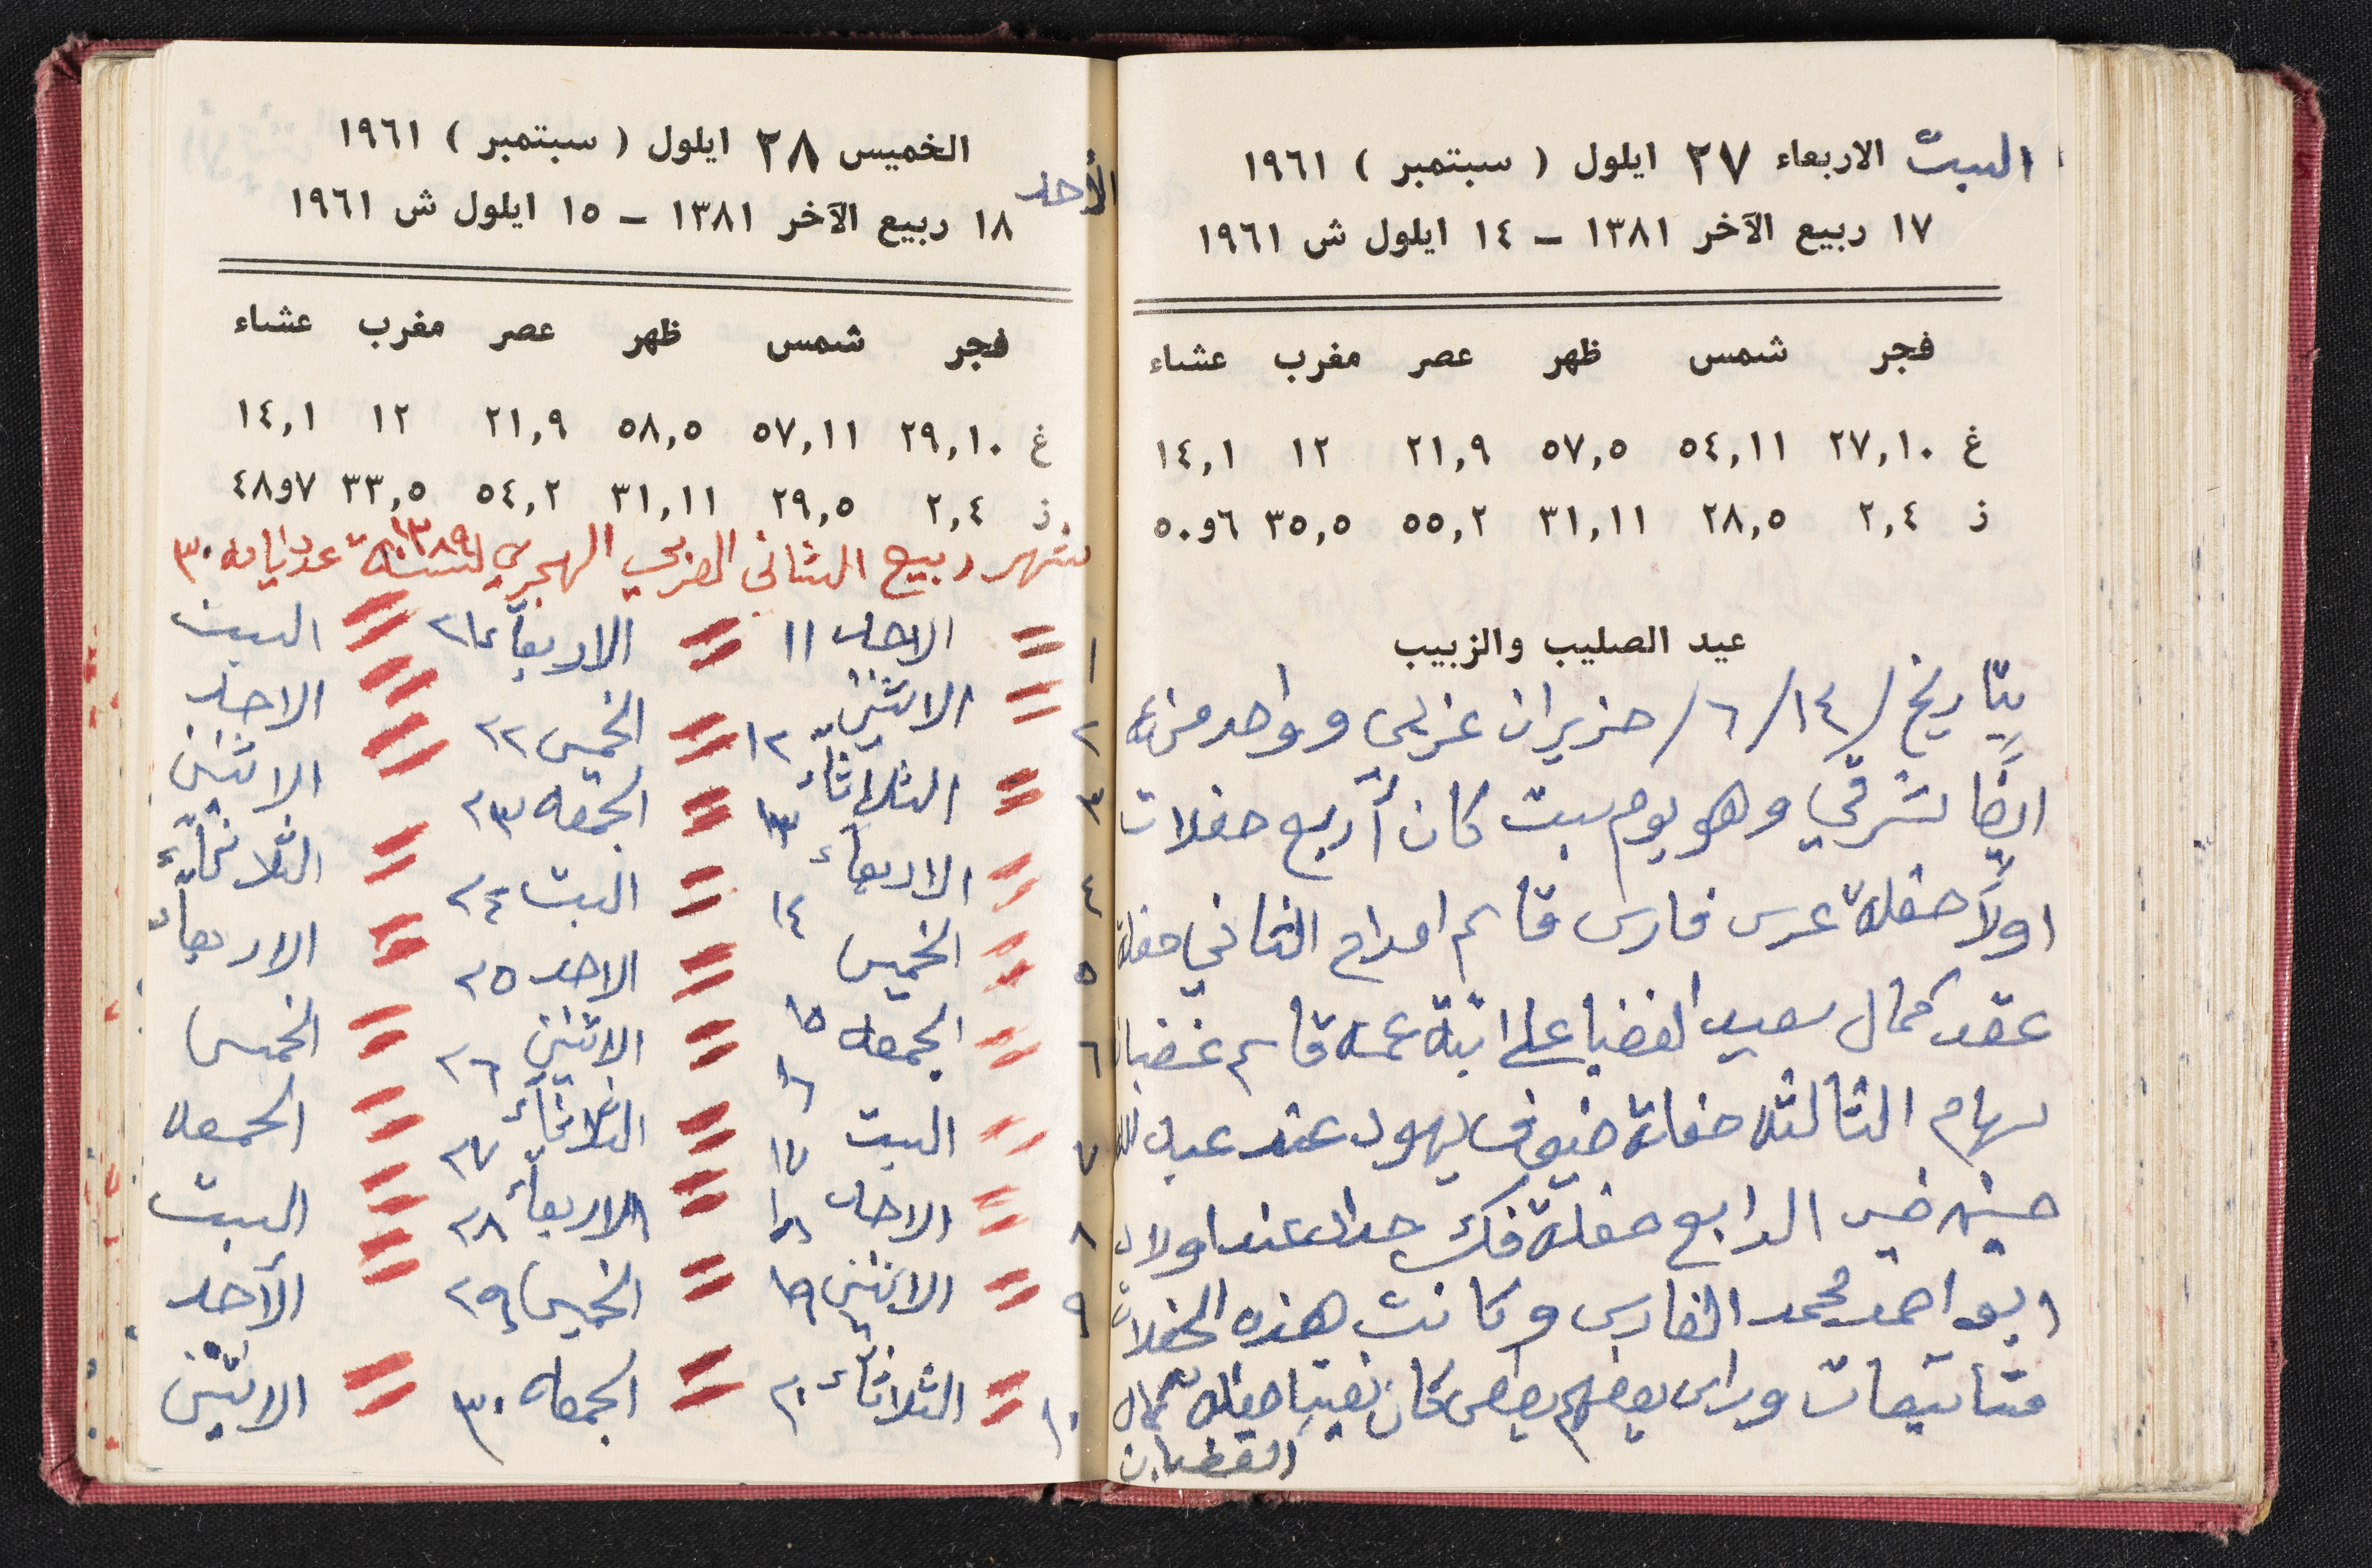 السبت الاربعاء ٢٧ ايلول ( سبتمبر ) ١٩٦١
١٧ ربيع الآخر ١٣٨١ – ١٤ ايلول ش ١٩٦١
فجر شمس ظهر عصر مغرب عشاء
غ ٢٧,١٠ ٥٤,١١ ٥٧,٥ ٢١,٩ ١٢ ١٤,١
ذ ٢,٤ ٢٨,٥ ٣١,١١ ٥٥,٢ ٣٥,٥ ٦و٥٠
عيد الصليب والزبيب
بتاريخ /١٤/٦/ حزيران غربي وواحد منه
ايضًا شرقي وهو يوم سبت كان أربع حفلات
اولاً حفلة عرس فارس قاسم الثاني حفلة
عقد كمال سعيد الغضبا على ابنة عمه قاسم غضبان
سهام الثالثه حفلة ضيوف يهود عند عبد الله
خير الرابع حفلة فك حداد عند اولاد
ابو احمد محمد الفارس وكانت هذه الحفلات
متتابعات وراى بعضهم بعض كان حفلة كمال
الغضبان
الأحد الخميس ٢٨ ايلول ( سبتمبر ) ١٩٦١
١٨ ربيع الآخر ١٣٨١ – ١٥ ايلول ش ١٩٦١
فجر شمس ظهر عصر مغرب عشاء
غ ٢٩,١٠ ٥٧,١١ ٥٨,٥ ٢١,٩ ١٢ ١٤,١
ذ ٢,٤ ٢٩,٥ ٣١,١١ ٥٤,٢ ٣٣,٥ ٧و٤٨
شهر ربيع الثاني العربي الهجري لسنة ١٣٨٩ عدد ايامه ٣٠
١ = الاحد ١١ = الاربعاء ٢١ = السبت
٢ = الاثنين ١٢ = الخميس ٢٢ = الاحد
٣ = الثلاثاء ١٣ = الجمعه ٢٣ = الاثنين
٤ = الاربعاء ١٤ = السبت ٢٤ = الثلاثاء
٥ = الخميس ١٥ = الاحد ٢٥ = الاربعاء
٦ = الجمعه ١٦ = الاثنين ٢٦ = الخميس
٧ = السبت ١٧ = الثلاثاء ٢٧ = الجمعه
٨ = الاحد ١٨ = الاربعاء ٢٨ = السبت
٩ = الاثنين ١٩ = الخميس ٢٩ = الأحد
١٠ = الثلاثاء ٢٠ = الجمعه ٣٠ = الاثنين